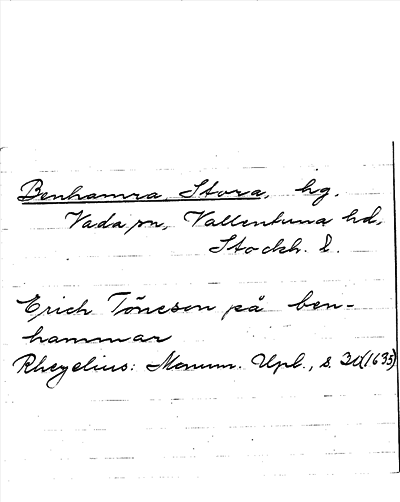 Benhamra, Stora, hg.
Vada sn, Vallentuna hd,
Stockh. l.
Erich Töneson på ben-
hammar
Rhezelius: Monum. Upl., s. (1635)